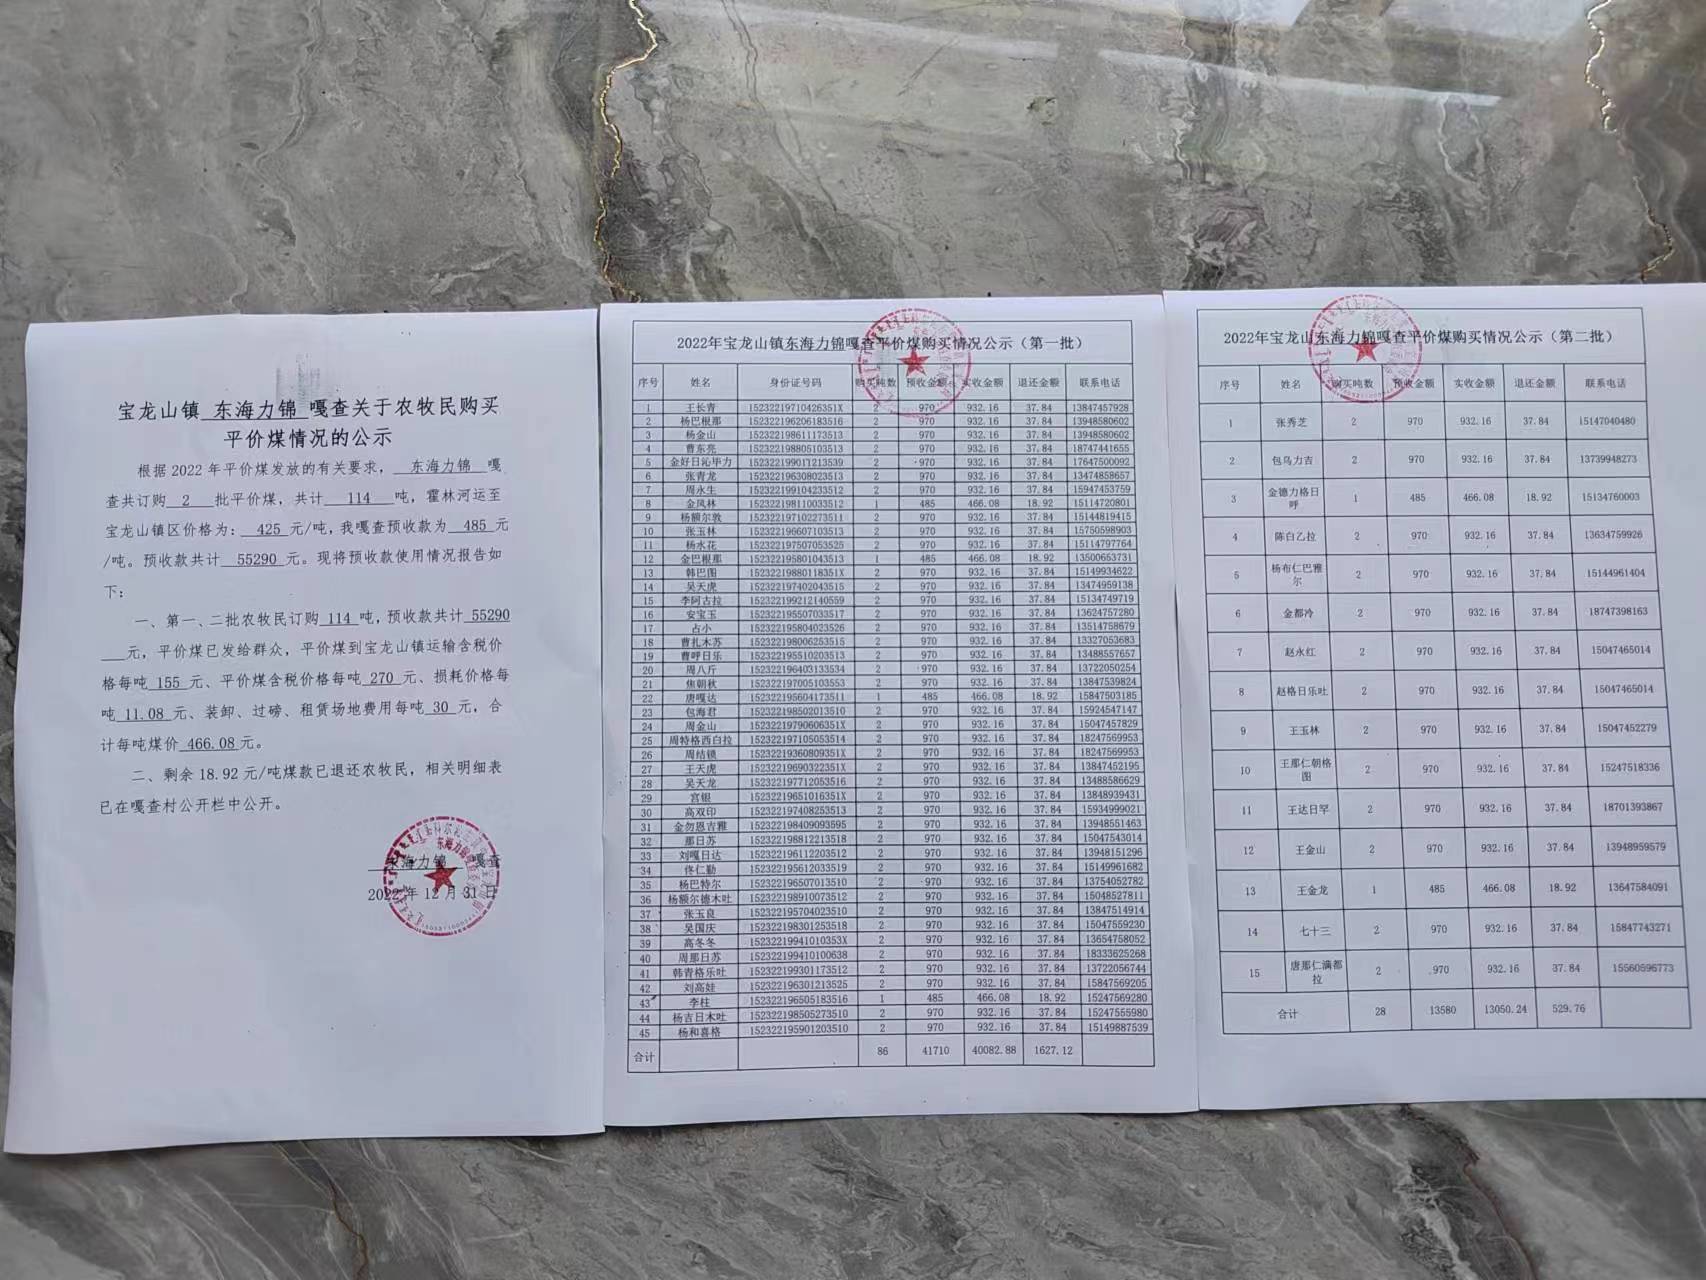 宝龙山镇 东海力锦 嘎查关于农牧民购买
平价煤情况的公示
根据2022年平价煤发放的有关要求，东海力锦 嘎
查共订购 2 批平价煤，共计 114 吨，霍林河运至
宝龙山镇区价格为：425 元/吨，我嘎查预收款为 485 元
/吨。预收款共计 55290 元。现将预收款使用情况报告如
下：
一、第一、二批农牧民订购 114 吨，预收款共计 55290
元，平价煤已发给群众，平价煤到宝龙山镇运输含税价
格每吨 155 元、平价煤含税价格每吨 270 元、损耗价格每
吨 11.08 元、装卸、过磅、租赁场地费用每吨 30 元，合
计每吨煤价 466.08 元。
二、剩余 18.92 元/吨煤款已退还农牧民，相关明细表
已在嘎查村公开栏中公开。
东海力锦 嘎查
2022 年 12 月 31 日
2022年宝龙山镇东海力锦嘎查平价煤购买情况公示（第一批）
序号 姓名 身份证号码 购买吨数 预收金额 实收金额 退还金额 联系电话
1 王长青 15232219710426351X 2 970 932.16 37.84 13847457928
2 杨巴根那 152322196206183516 2 970 932.16 37.84 13948580602
3 杨金山 152322198611173513 2 970 932.16 37.84 13948580602
4 曹东亮 152322198805103513 2 970 932.16 37.84 18747441655
5 金好日沁毕力 152322199011213539 2 970 932.16 37.84 17647500092
6 张青龙 152322196308023513 2 970 932.16 37.84 13474858657
7 周永生 152322199104233512 2 970 932.16 37.84 15947453759
8 金凤林 152322198110033512 1 485 466.08 18.92 15114720801
9 杨额尔敦 152322197102273511 2 970 932.16 37.84 15144819415
10 张玉林 152322196607103513 2 970 932.16 37.84 15750598903
11 杨水花 152322197507053525 2 970 932.16 37.84 15114797764
12 金巴根那 152322195801043513 1 485 466.08 18.92 13500653731
13 韩巴图 15232219880118351X 2 970 932.16 37.84 15149934622
14 吴天虎 152322197402043515 2 970 932.16 37.84 13474959138
15 李阿古拉 152322199212140559 2 970 932.16 37.84 15134749719
16 安宝玉 152322195507033517 2 970 932.16 37.84 13624757280
17 占小 152322195804023526 2 970 932.16 37.84 13514758679
18 曹扎木苏 152322198006253515 2 970 932.16 37.84 13327053683
19 曹呼日乐 152322195510203513 2 970 932.16 37.84 13488557657
20 周八斤 152322196403133534 2 970 932.16 37.84 13722050254
21 焦朝秋 152322197005103553 2 970 932.16 37.84 13847539824
22 唐嘎达 152322195604173511 1 485 466.08 18.92 15847503185
23 包海君 152322198502013510 2 970 932.16 37.84 15924547147
24 周金山 15232219790606351X 2 970 932.16 37.84 15047457829
25 周特格西白拉 152322197105053514 2 970 932.16 37.84 18247569953
26 周结锁 15232219360809351X 2 970 932.16 37.84 18247569953
27 王天虎 15232219690322351X 2 970 932.16 37.84 13847452195
28 吴天龙 152322197712053516 2 970 932.16 37.84 13488586629
29 宫银 15232219651016351X 2 970 932.16 37.84 13848939431
30 高双印 152322197408253513 2 970 932.16 37.84 15934999021
31 金勿恩吉雅 152322198409093595 2 970 932.16 37.84 13948551463
32 那日苏 152322198812213518 2 970 932.16 37.84 15047543014
33 刘嘎日达 152322196112203512 2 970 932.16 37.84 13948151296
34 佟仁勤 152322195612033519 2 970 932.16 37.84 15149961682
35 杨巴特尔 152322196507013510 2 970 932.16 37.84 13754052782
36 杨额尔德木吐 152322198910073512 2 970 932.16 37.84 15048527811
37 张玉良 152322195704023510 2 970 932.16 37.84 13847514914
38 吴国庆 152322198301253518 2 970 932.16 37.84 15047559230
39 高冬冬 15232219941010353X 2 970 932.16 37.84 13654758052
40 周那日苏 152322199410100638 2 970 932.16 37.84 18333625268
41 韩青格乐吐 152322199301173512 2 970 932.16 37.84 13722056744
42 刘高娃 152322196301213525 2 970 932.16 37.84 15847569205
43 李柱 152322196505183516 1 485 466.08 18.92 15247569280
44 杨吉日木吐 152322198505273510 2 970 932.16 37.84 15247555980
45 杨和喜格 152322195901203510 2 970 932.16 37.84 15149887539
合计 86 41710 40082.88 1627.12
2022年宝龙山东海力锦嘎查平价煤购买情况公示（第二批）
序号 姓名 购买吨数 预收金额 实收金额 退还金额 联系电话
1 张秀芝 2 970 932.16 37.84 15147040480
2 包乌力吉 2 970 932.16 37.84 13739948273
3 金德力格日呼 1 485 466.08 18.92 15134760003
4 陈白乙拉 2 970 932.16 37.84 13634759926
5 杨布仁巴雅尔 2 970 932.16 37.84 15144961404
6 金都冷 2 970 932.16 37.84 18747398163
7 赵永红 2 970 932.16 37.84 15047465014
8 赵格日乐吐 2 970 932.16 37.84 15047465014
9 王玉林 2 970 932.16 37.84 15047452279
10 王那仁朝格图 2 970 932.16 37.84 15247518336
11 王达日罕 2 970 932.16 37.84 18701393867
12 王金山 2 970 932.16 37.84 13948959579
13 王金龙 1 485 466.08 18.92 13647584091
14 七十三 2 970 932.16 37.84 15847743271
15 唐那仁满都拉 2 970 932.16 37.84 15560596773
合计 28 13580 13050.24 529.76